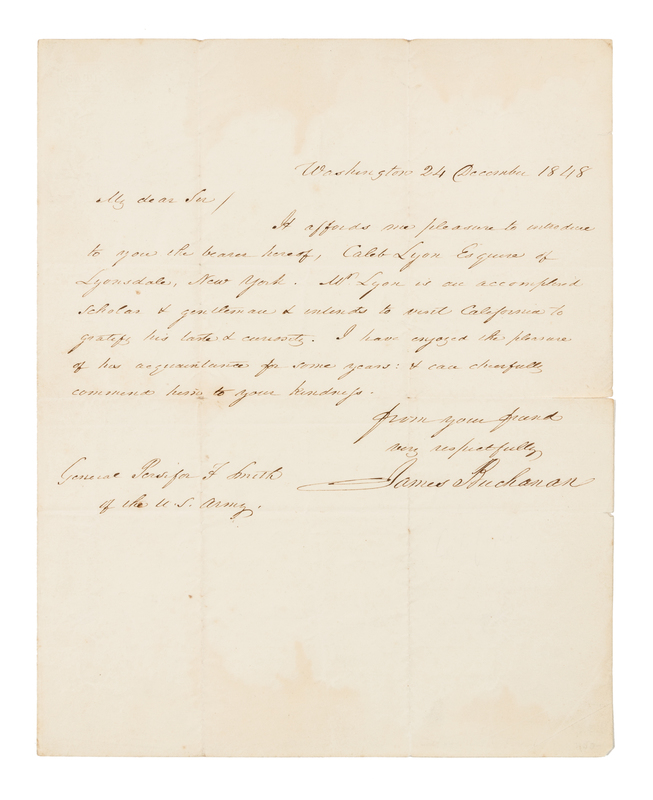 Washington 24 December 1848
My dear Sir/
It affords me pleasure to introduce
to you the bearer hereof, Caleb Lyon Esquire of
Lyonsdale, New York. Mr Lyon is an accomplish'd
scholar & gentleman & intends to visit California to
gratify his taste & curiosity. I have enjoyed the pleasure
of his acquaintance for some years: & can cheerfully
commend him to your kindness.
from your friend
very respectfully
James Buchanan
General Persifor F Smith
of the U.S. Army.